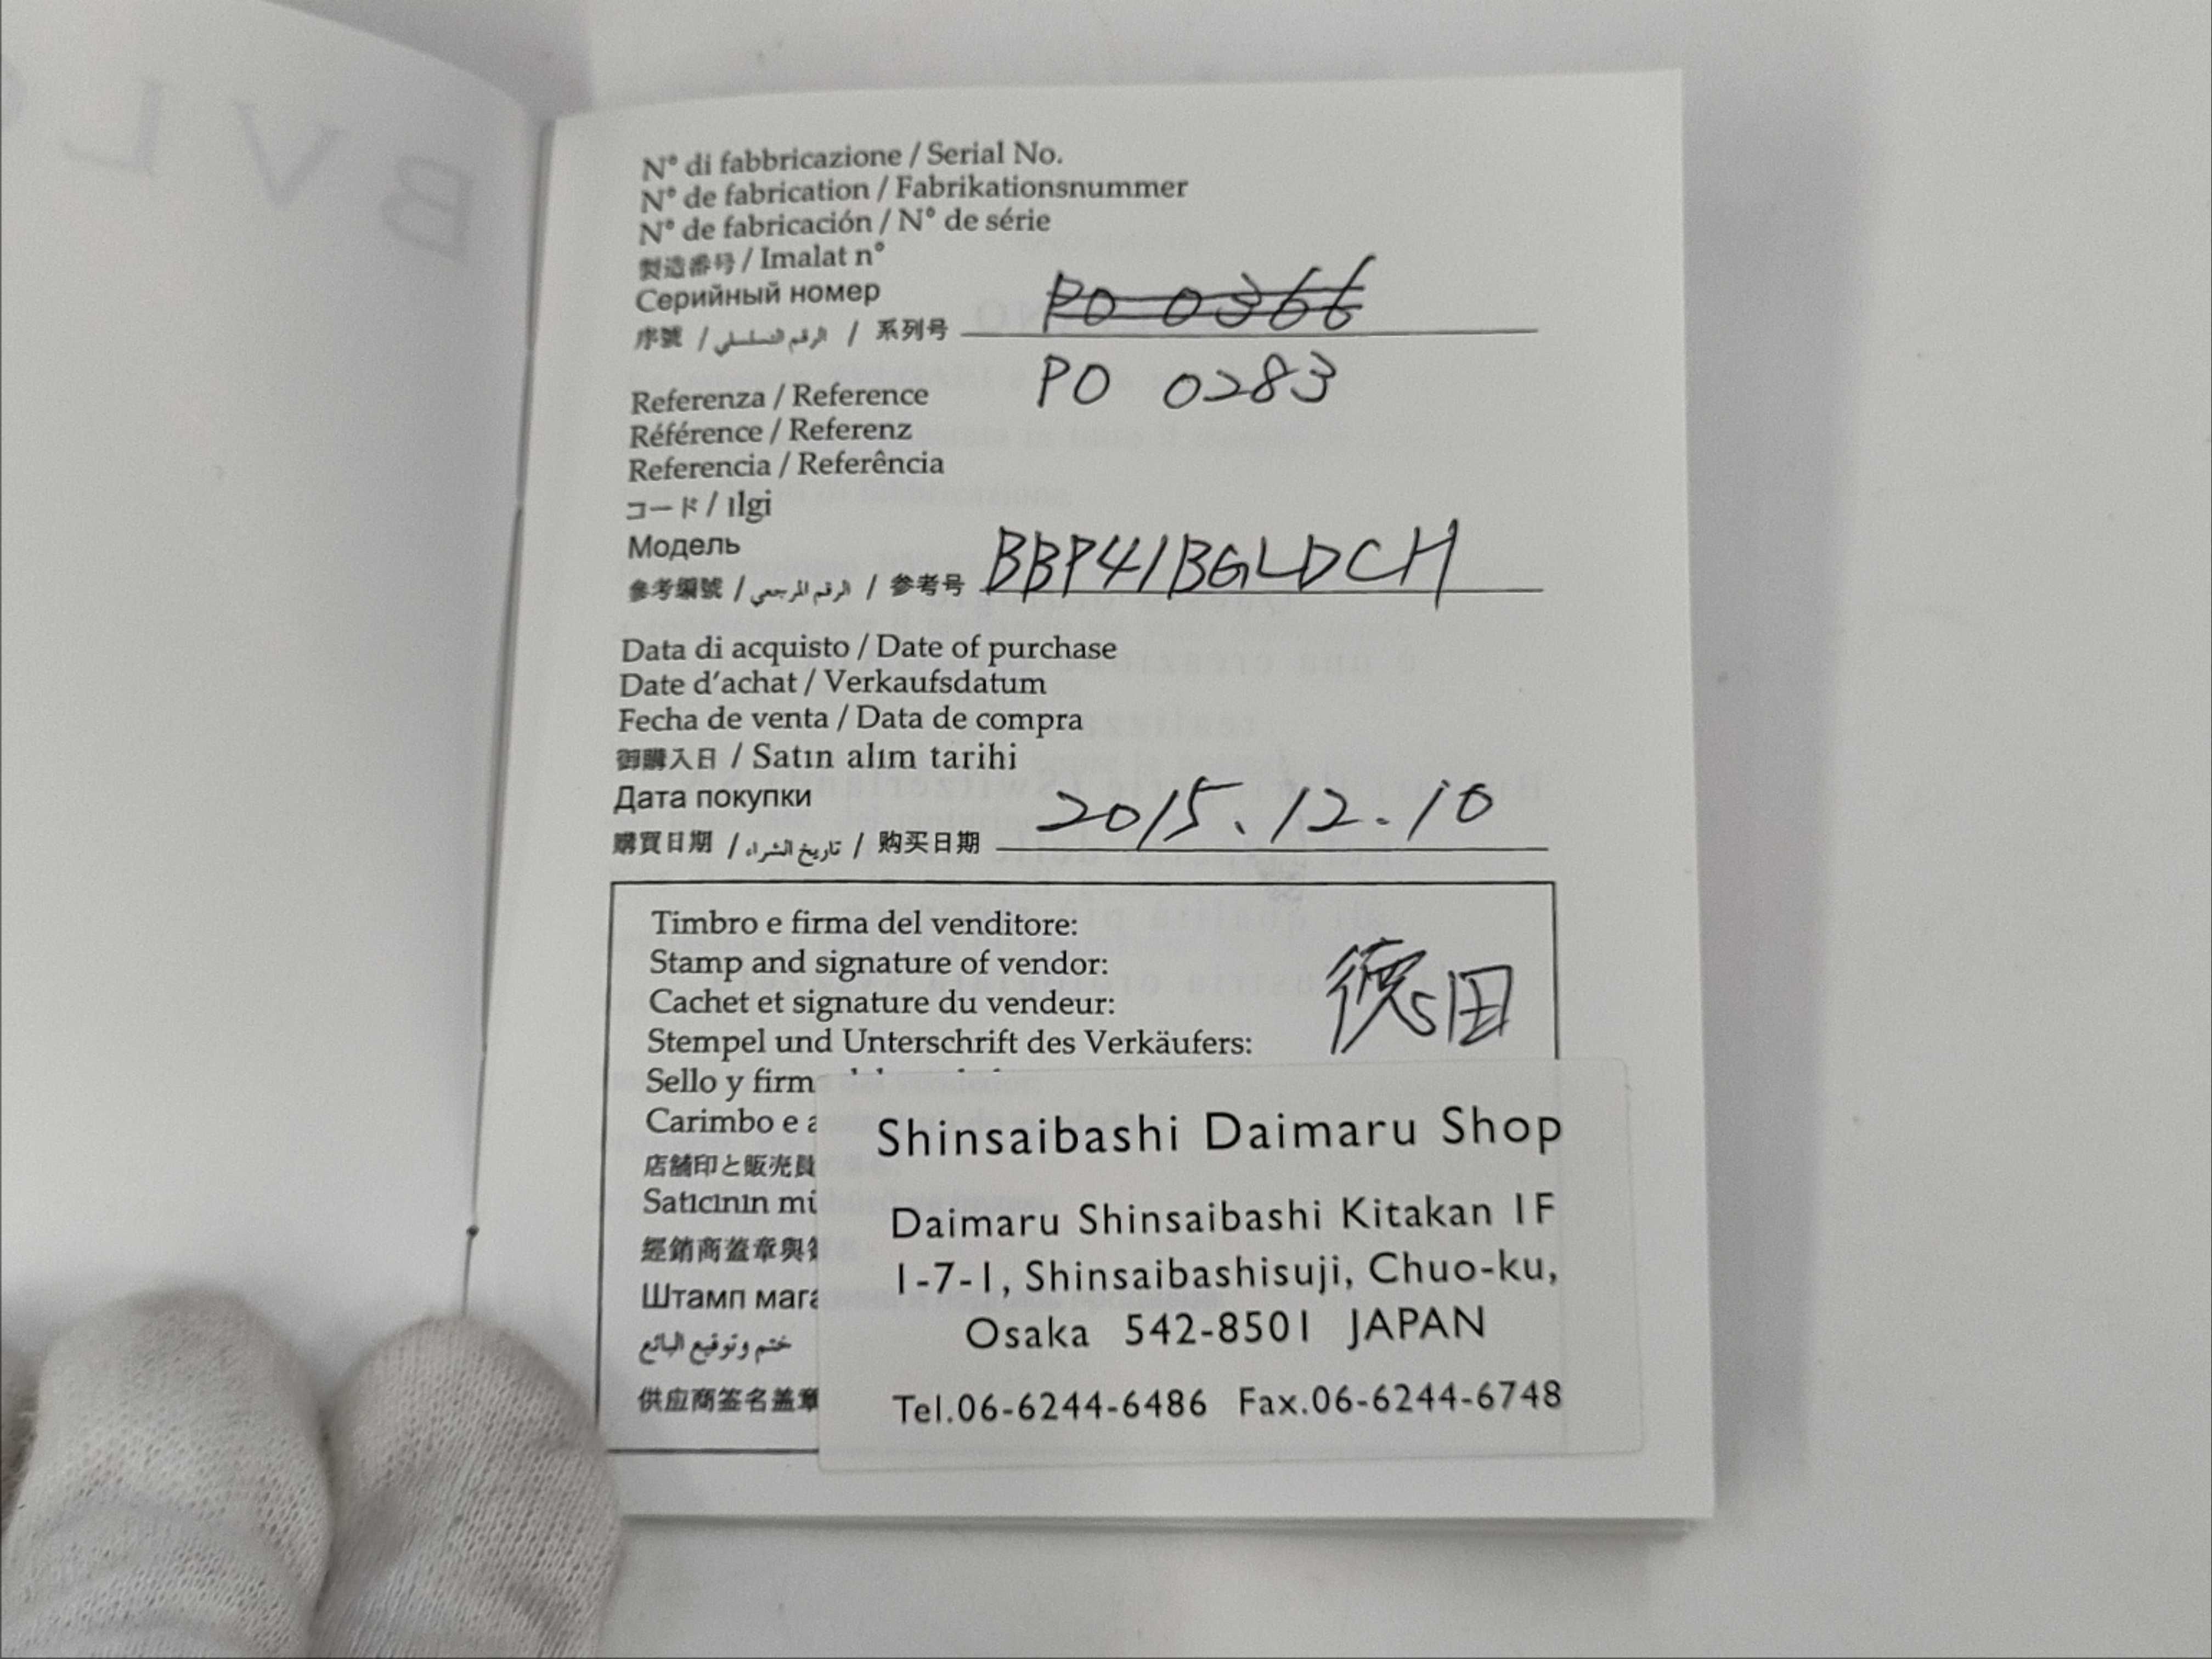 BVLG
N° di fabbricazione / Serial No.
N° de fabrication / Fabrikationsnummer
N° de fabricación / N° de série
製造番号 / Imalat n°
Серийный номер
序號 / الرقم التسلسلي / 系列号 PO 0366
PO 0283
Referenza / Reference
Référence / Referenz
Referencia / Referência
コード / ılgi
Модель
參考編號 / الرقم المرجعي / 参考号 BBP41BGLDCH
Data di acquisto / Date of purchase
Date d'achat / Verkaufsdatum
Fecha de venta / Data de compra
御購入日 / Satın alım tarihi
Дата покупки
購買日期 / تاريخ الشراء / 购买日期 2015.12.10
Timbro e firma del venditore:
Stamp and signature of vendor:
Cachet et signature du vendeur:
Stempel und Unterschrift des Verkäufers:
德田
Sello y firma
Carimbo e a
店舗印と販売員
Satıcının mü
經銷商蓋章與簽
Штамп мага
ختم وتوقيع البائع
供应商签名盖章
Shinsaibashi Daimaru Shop
Daimaru Shinsaibashi Kitakan 1F
1-7-1, Shinsaibashisuji, Chuo-ku,
Osaka 542-8501 JAPAN
Tel.06-6244-6486 Fax.06-6244-6748